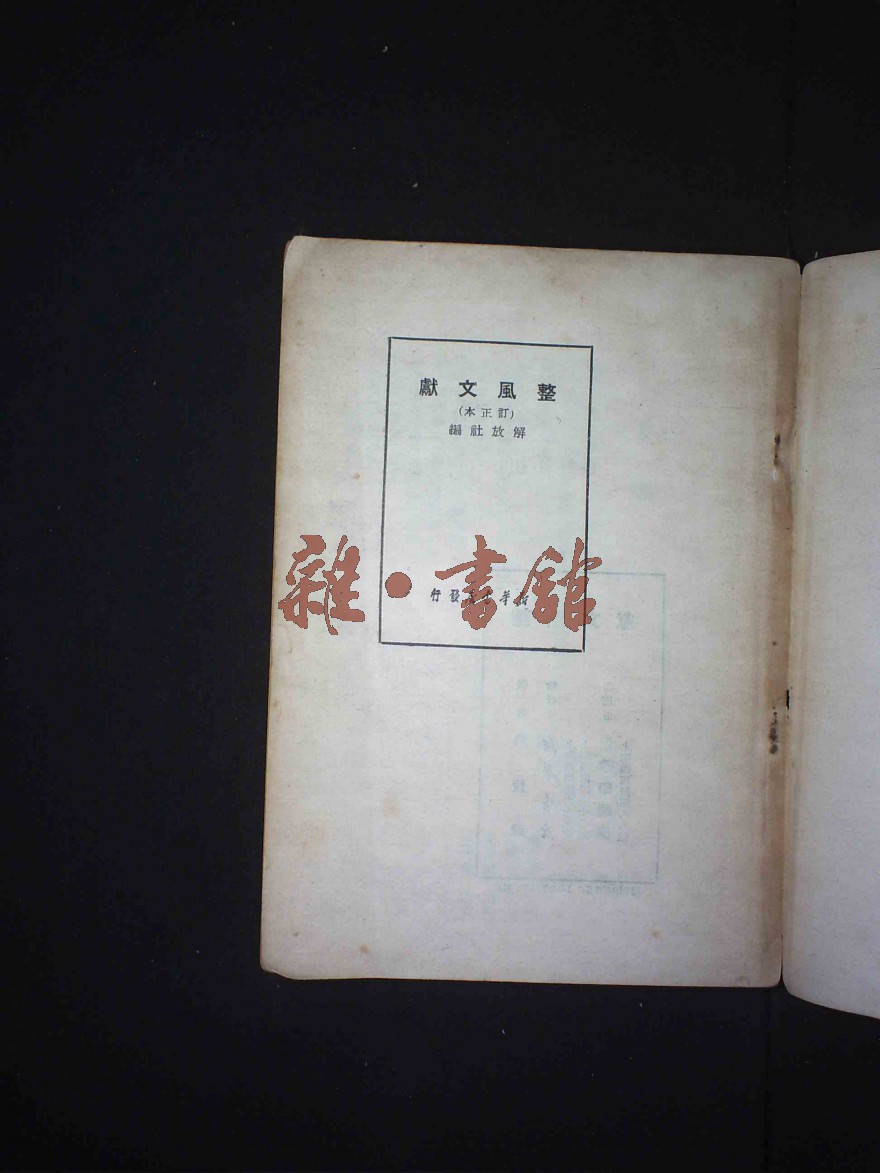 整風文獻
(訂正本)
解放社編
新華書店發行
雜·書館